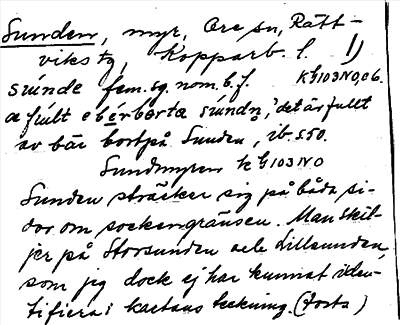 Sunden, myr, Ore sn, Rätt-
viks tg, Kopparb. l. 1)
súnde fem.sg.nom.b.f. K G103NO,06.
a fúlt e bérborta súndn, 'det är fullt
av bär bortpå Sunden, ib. s50.
Sundmyren k G103NO
Sunden sträcker sig på båda si-
dor om sockengränsen. Man skil-
jer på Storsunden och Lillsunden,
som jag dock ej har kunnat iden-
tifiera i kartans teckning. (forts)